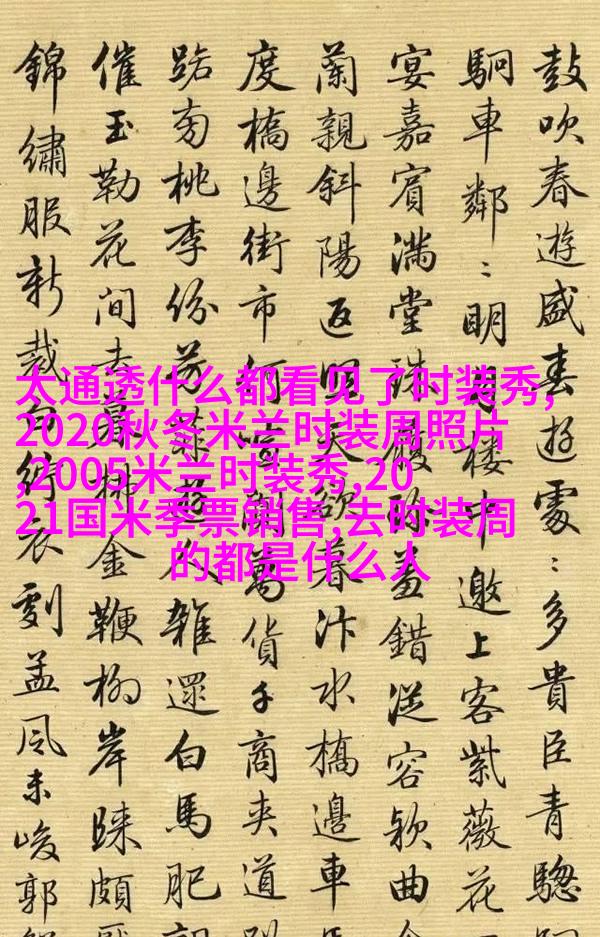 鼓吹春遊盛春遊處:多貴臣青驄
駉車鄰:明月樓中邀上客紫薇花
宴嘉賓滿堂珠履羞錯從容歌曲
蘭親斜陽返天欲暮汴水橋邊車
度橋邊街市何萬貨千商夾道
踏桃李份芳菲遊人雜還白馬肥
催玉勒花間去金鞭柳岸頗
錦繡服新裁衣劉孟風未峻郭
太通透什么都看见了时装秀,
2020秋冬米兰时装周照片
,2005米兰时装秀,20
21国米季票销售,去时装周
的都是什么人